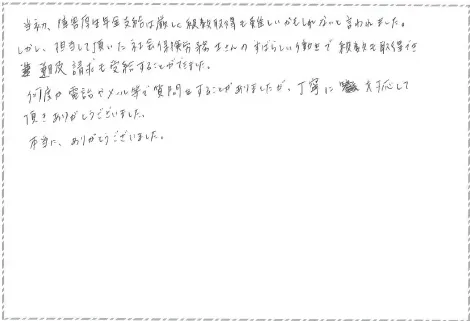 当初、障害厚生年金支給は厳しく級数取得も難しいかもしれないと言われました。
しかし、担当して頂いた社会保険労務士さんのすばらしい働きで級数も取得でき
遡及請求も受給することができました。
何度か電話やメール等で質問をすることがありましたが、丁寧に対応して
頂きありがとうございました。
本当に、ありがとうございました。